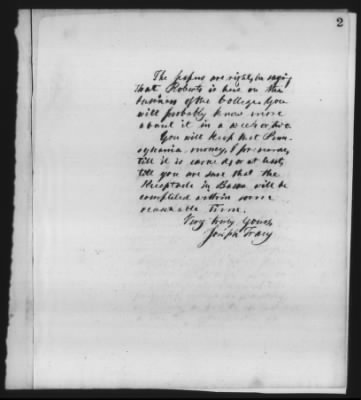 2
The papers are right, in saying
that Roberts is here on the
business of the College. You
will probably know more
about it in a week or two.
You will keep that Penn-
sylvania money, I presume,
till it is earned, or at least,
till you are sure that the
Receptacle in Bassa will be
completed within some
reasonable time.
Very truly Yours,
Joseph Tracy